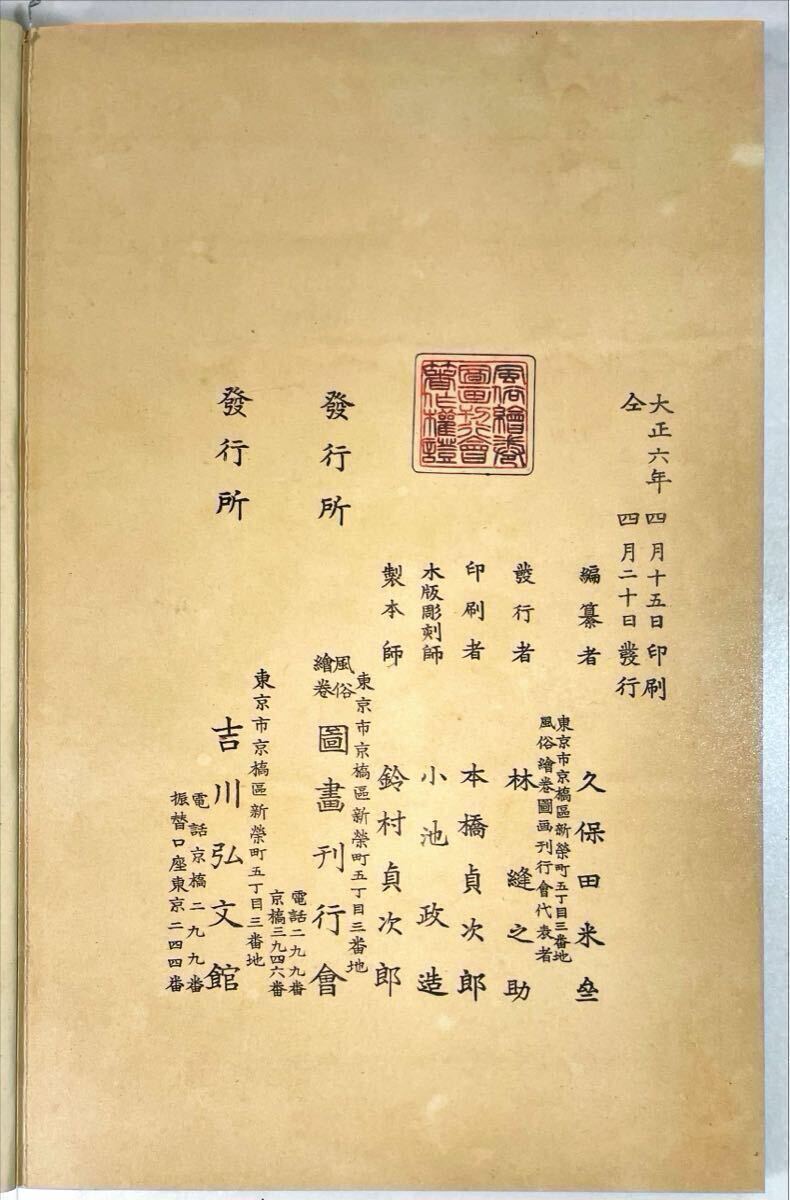 大正六年四月十五日印刷
仝四月二十日發行
風俗繪卷
圖畫刊行會
著作權證
編纂者 久保田米𠫭
東京市京橋區新榮町五丁目三番地
風俗繪卷圖画刊行會代表者
發行者 林縫之助
印刷者 本橋貞次郎
木版彫刻師 小池政造
製本師 鈴村貞次郎
東京市京橋區新榮町五丁目三番地
發行所 風俗繪卷圖畫刊行會
電話二九九番
京橋三九四六番
東京市京橋區新榮町五丁目三番地
發行所 吉川弘文館
電話京橋二九九番
振替口座東京二四四番